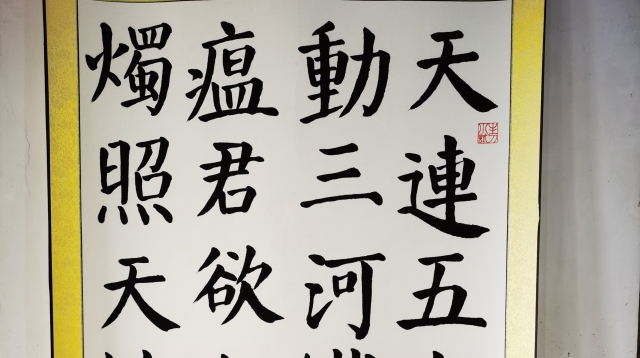 天連五
動三河
瘟君欲
燭照天